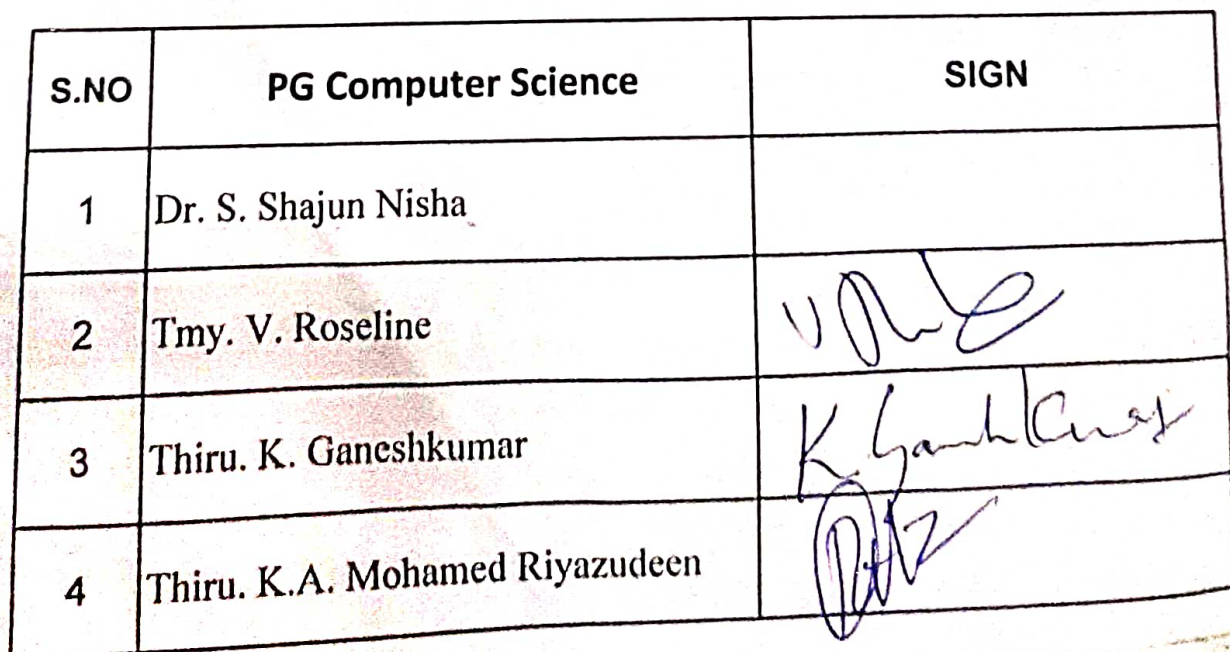 S.NO PG Computer Science SIGN
1 Dr. S. Shajun Nisha
2 Tmy. V. Roseline
3 Thiru. K. Ganeshkumar K. Ganesh Kumar
4 Thiru. K.A. Mohamed Riyazudeen